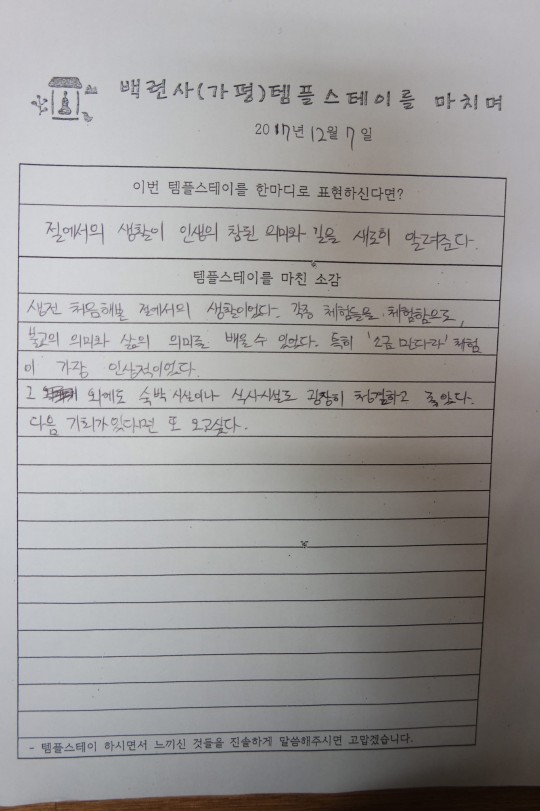 백련사(가평)템플스테이를 마치며
2017년 12월 7일
이번 템플스테이를 한마디로 표현하신다면?
절에서의 생활이 인생의 참된 의미와 길을 새로히 알려준다.
템플스테이를 마친 소감
생전 처음해본 절에서의 생활이었다. 각종 체험들을 체험함으로,
불교의 의미와 삶의 의미를 배울 수 있었다. 특히 '소금만다라' 체험
이 가장 인상적이었다.
그 외에도 숙박시설이나 식사시설도 굉장히 청결하고 좋았다.
다음 기회가 있다면 또 오고싶다.
- 템플스테이 하시면서 느끼신 것들을 진솔하게 말씀해주시면 고맙겠습니다.